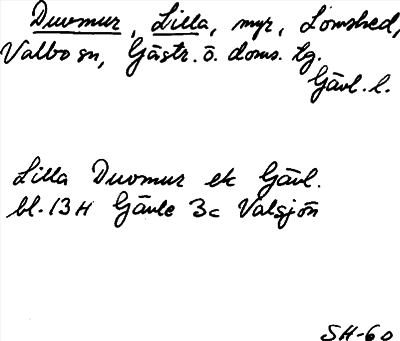 Duvmur, Lilla, myr, Lomshed,
Valbo sn, Gästr. ö. doms. tg.
Gävl. l.
Lilla Duvmur ek Gävl.
bl. 13 H Gävle 3c Valsjön
SH-60